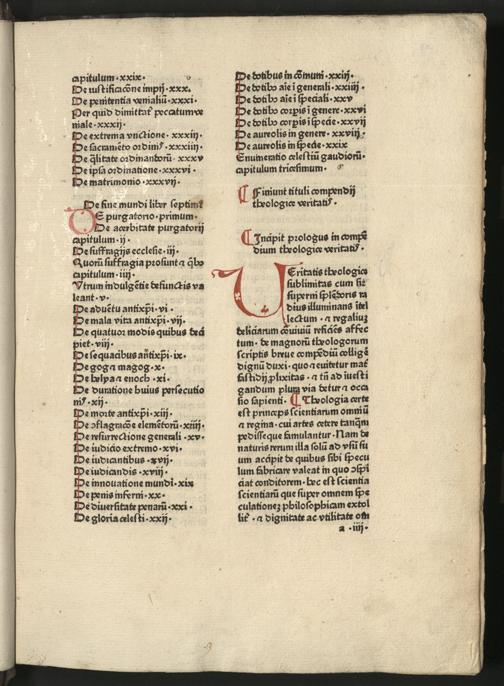 capitulum ·xxix·
De iustificacōne impij ·xxx·
De penitentia venialiū ·xxxi·
Per quid dimittat̄ peccatum ve
niale ·xxxij·
De extrema vnctione ·xxxiij·
De sacramēto ordinis̄ ·xxxiiij·
De q̄litate ordinandorū ·xxxv
De ipsa ordinatione ·xxxvi·
De matrimonio ·xxxvij·
De fine mundi liber septim⁹
DE purgatorio primum·
De acerbitate purgatorij
capitulum ·ij·
De suffragijs ecclesie ·iij·
Quorū suffragia prosunt ⁊ q̄bo
capitulum ·iiij·
Vtrum indulgētie defunctis va
leant ·v·
De aduētu antixp̄i ·vi·
De mala vita antixp̄i ·vij·
De quatuor modis quibus deci
piet ·viij·
De sequacibus antixp̄i ·ix·
De gog ⁊ magog ·x·
De helya ⁊ enoch ·xi·
De duratione huius persecutio
nis̄ ·xij·
De morte antixp̄i ·xiij·
De ↄflagracōe elemētorū ·xiiij·
De resurrectione generali ·xv·
De iudicio extremo ·xvi·
De iudicantibus ·xvij·
De iudicandis ·xviij·
De innouatione mundi ·xix
De penis inferni ·xx·
De diuersitate penarū ·xxi·
De gloria celesti ·xxij·
De dotibus in cōmuni ·xxiij·
De dotibꝫ aīe ī generali ·xxiiij·
De dotibꝫ aīe ī speciali ·xxv
De dotibꝫ corpis̄ ī genere ·xxvi
De dotibꝫ corpis̄ ī specie ·xxvij
De aureolis in genere ·xxviij·
De aureolis in specie ·xxix
Enumeratio celestiū gaudiorū·
capitulum tricesimum·
Finiunt tituli compendij
theologice veritatis̄·
Incipit prologus in compē
dium theologice veritatis̄·
VEritatis theologice
sublimitas cum sit
superni splēdoris ra
dius illuminans ītel
lectum· ⁊ regaliuꝫ
deliciarum cōuiuiū reficiēs affec
tum· de magnorū theologorum
scriptis breue compēdiū collige
dignū duxi· quo ⁊ euitetur mat̄
fastidij ꝓlixitas· ⁊ tn̄ ad īuesti
gandum plura via detur ⁊ occa
sio sapienti· Theologia certe
est princeps scientiarum omniū
⁊ regina· cui artes cetere tanq̄m
pedisseque famulantur· Nam de
naturis rerum illa solū ad vsū su
um accipit de quibus sibi specu
lum fabricare valeat in quo ↄspi
ciat conditorem· hec est scientia
scientiarū que super omnem spe
culationeꝫ philosophicam extol
lit̄· ⁊ dignitate ac vtilitate om
a ·iiij·